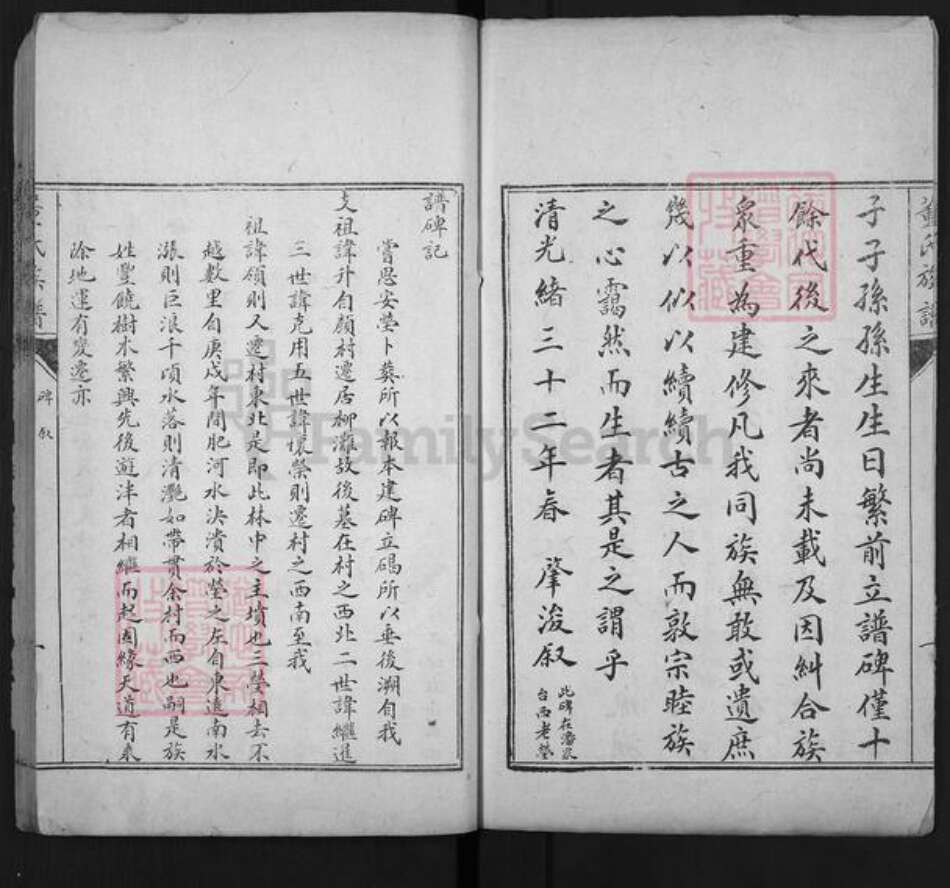 子子孫孫生生日繁前立譜碑僅十
餘代後之來者尚未載及因糾合族
衆重為建修凡我同族無敢或遺庶
幾以似以續續古之人而敦宗睦族
之心靄然而生者其是之謂乎
清光緒三十二年春 肇浚叙
此碑在潘家
台西老塋
譜碑記
嘗思安塋卜葬所以報本建碑立碣所以垂後溯自我
支祖諱升自顏村遷居柳灘故後墓在村之西北二世諱繼進
三世諱克用五世諱懷榮則遷村之西南至我
祖諱領則又遷村東北是即此林中之主墳也三塋相去不
越數里自庚戌年間肥河水決潰於塋之左自東遶南水
漲則巨浪千頃水落則清灔如帶貫余村而西也嗣是族
姓豐饒樹木繁興先後遊泮者相繼而起因緣天道有乘
除地運有變遷亦
氏族譜
碑叙
一
FamilySearch